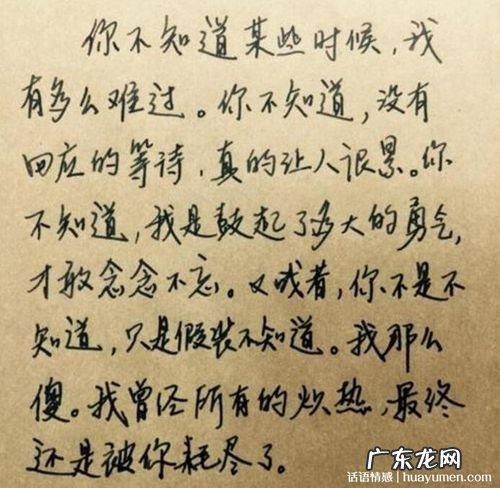 你不知道某些时候，我
有多么难过。你不知道，没有
回应的等待，真的让人很累。你
不知道，我是鼓起了多大的勇气，
才敢念念不忘。又或者，你不是不
知道，只是假装不知道。我那么
傻。我曾经所有的炽热，最终
还是被你耗尽了。
广东龙网
话语情感 | huayumen.com